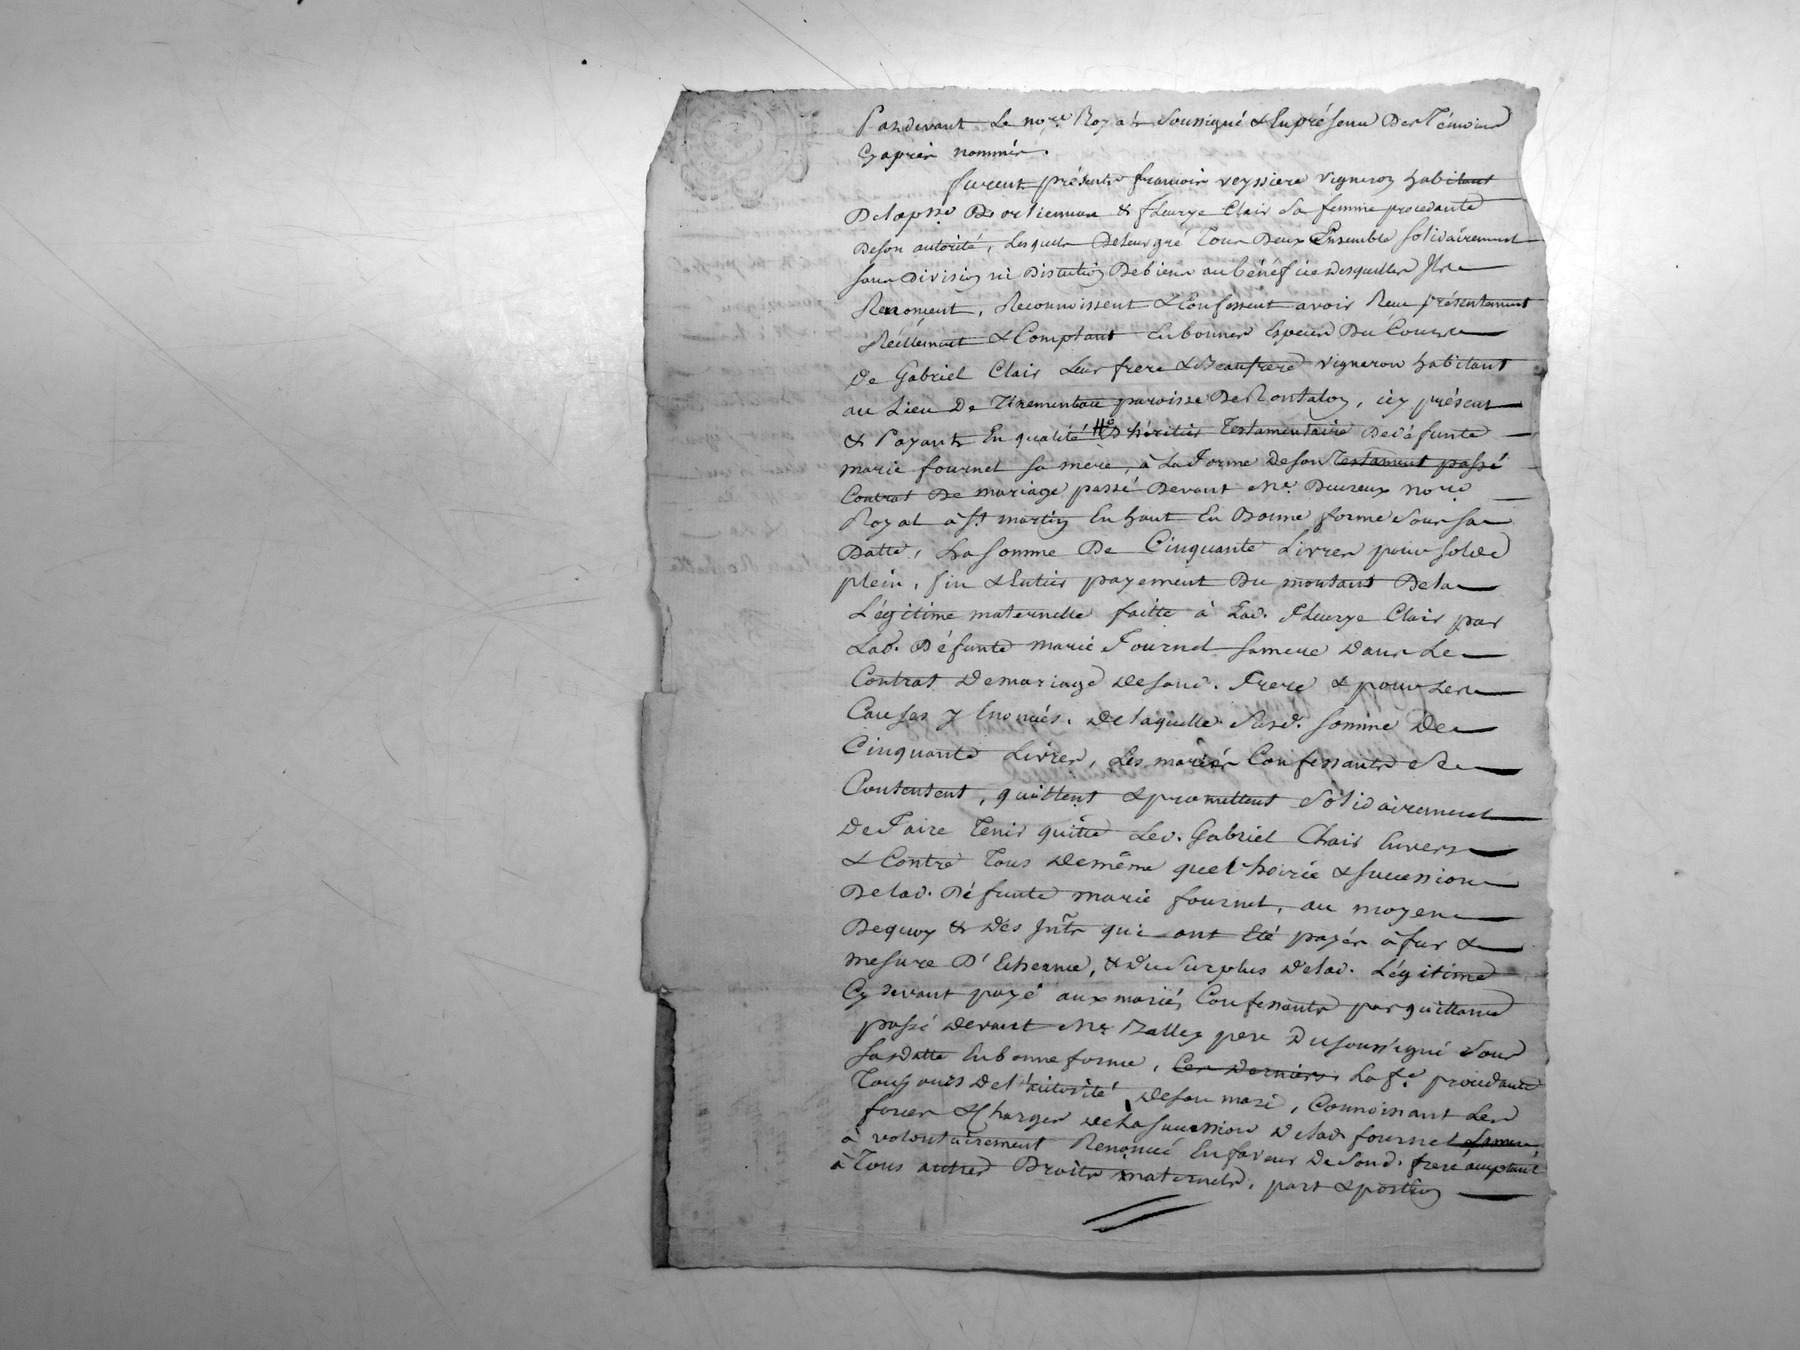 Pardevant Le no.re Royal Soussigné & En présence Des Témoins
Cy après nommés.
furent présents françois veyssiere vigneron habitant
Delapsse D'orlienas & fleurye Clair Sa femme procedante
De son autorité, Lesquels De Leur gré Tous Deux Ensemble solidairement
sans Division ni Distution De biens au bénéfice desquelles Ils
Renoncent, Reconnoissent & Confessent avoir Reçu présentement
Réellement & Comptant En bonnes Especes Du Cours
De Gabriel Clair Leur frere & Beaufrere vigneron habitant
au Lieu De paroisse De Rontalon, icy présent
& Payant En qualité D'héritier Testamentaire De défunte
marie fournel sa mère, à La forme De son Testament passé
Contrat De mariage passé Devant Me. Ducreux no.re
Royal à St. martin En haut En Bonne forme sous sa
Datte, La somme De Cinquante Livres pour solde
plein, fin & Entier payement Du montant De la
Légitime maternelle faitte à Lad. Fleurye Clair par
Lad. Défunte marie Fournel sa mere Dans Le
Contrat De mariage De sond. Frere & pour Les
Causes y Enoncés. De laquelle Susd. somme De
Cinquante Livres, Les mariés Confessants Se
Contentent, quittent & promettent Solidairement
De Faire Tenir quitte Led. Gabriel Clair Envers
& Contre Tous De même que l'hoirie & succession
De lad. Défunte marie fournel, au moyen
De quoy & Des Intts qui ont Eté payés à fur &
mesure D'Echeance, & Du Surplus De lad. Légitime
Cy devant payé aux mariés Confessants par quittance
passé Devant Me Zallez pere Du soussigné Sous
sa Datte En bonne forme, Ces Derniers La fe. procedante
Toujours De l'autorité De son mari, Connoissant Les
forces & Charges De La succession De lad. fournel Sa mere
à volontairement Renoncé En faveur De Sond. frere acceptant
à Tous autres Droits maternels, part & portion